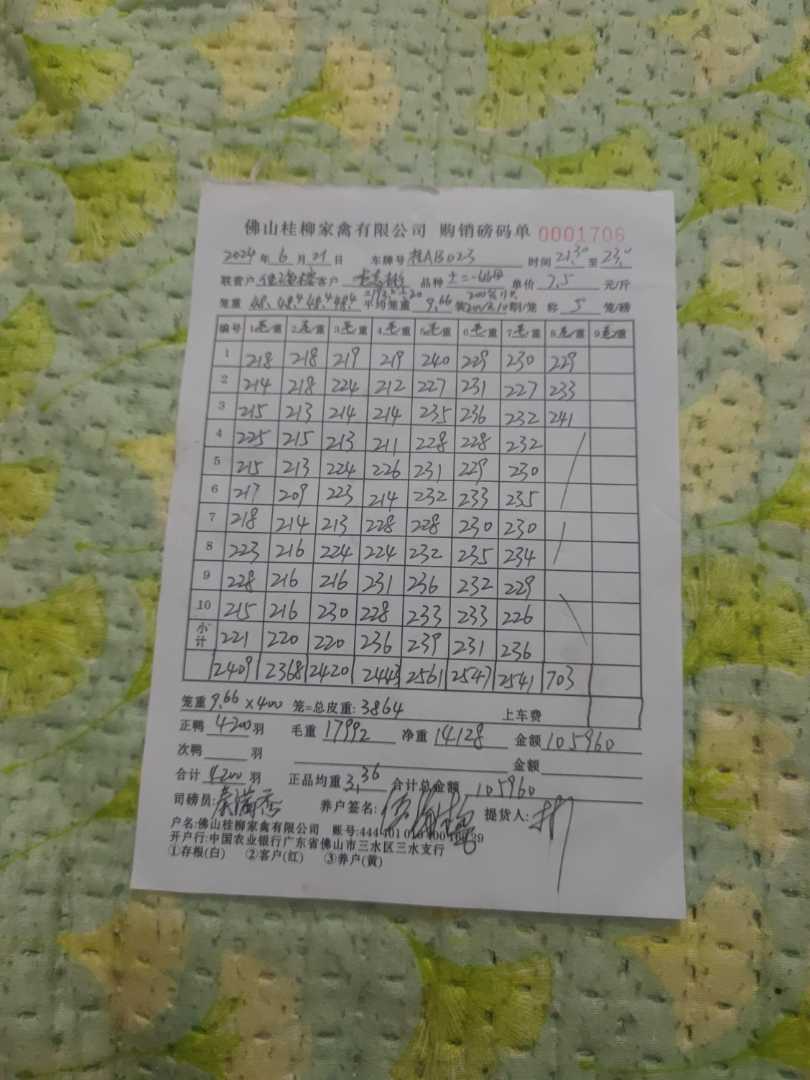 佛山桂柳家禽有限公司 购销磅码单 0001706
2024 年 6 月 21 日 车牌号 桂AB023 时间 21:30 至 23:0
联营户 客户 品种 单价 7.5 元/斤
笼重 48, 48.4 48.4 48.4 平均笼重 9.66 装 羽/笼 称 5 笼/磅
编号 1毛/重 2毛/重 3毛/重 4毛/重 5毛/重 6毛/重 7毛/重 8毛/重 9毛/重
1 218 218 219 219 240 229 230 229
2 214 218 224 212 227 231 227 233
3 215 213 214 214 235 236 232 241
4 225 215 213 211 228 228 232
5 215 213 224 226 231 229 230
6 217 209 223 214 232 233 235
7 218 214 213 228 228 230 230
8 223 216 224 224 232 235 234
9 228 216 216 231 236 232 229
10 215 216 230 228 233 233 226
小计 221 220 220 236 239 231 236
2409 2368 2420 2443 2561 2547 2541 703
笼重 9.66 × 400 笼=总皮重: 3864 上车费
正鸭 4200 羽 毛重 17992 净重 14128 金额 105960
次鸭 羽 金额
合计 4200 羽 正品均重 3.36 合计总金额 105960
司磅员: 养户签名: 提货人:
户名:佛山桂柳家禽有限公司 账号:
开户行:中国农业银行广东省佛山市三水区三水支行
①存根(白) ②客户(红) ③养户(黄)